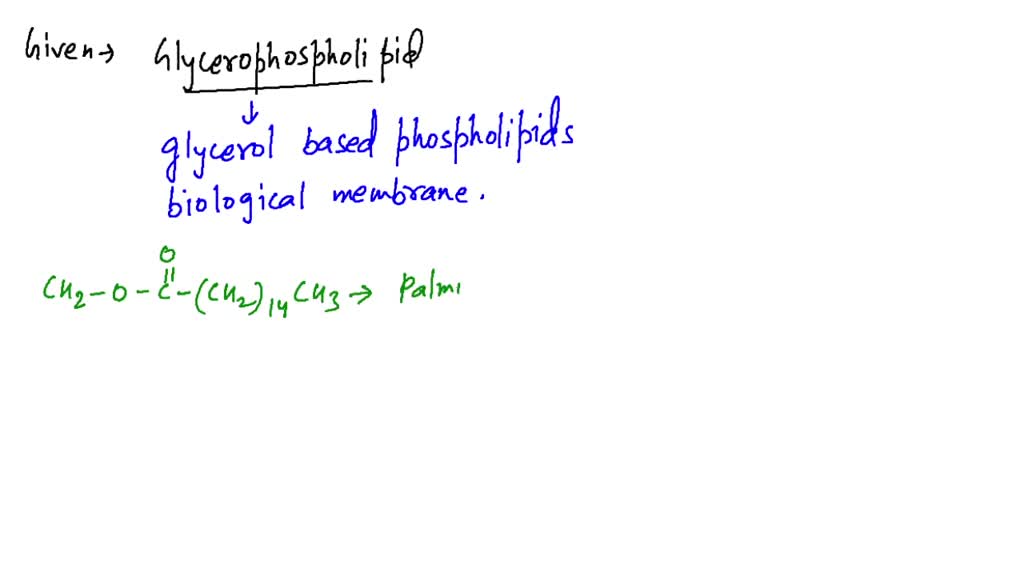 Given → Glycerophospholipid
↓
glycerol based phospholipids
biological membrane.
O
||
CH2-O-C-(CH2)14CH3 → Palmi